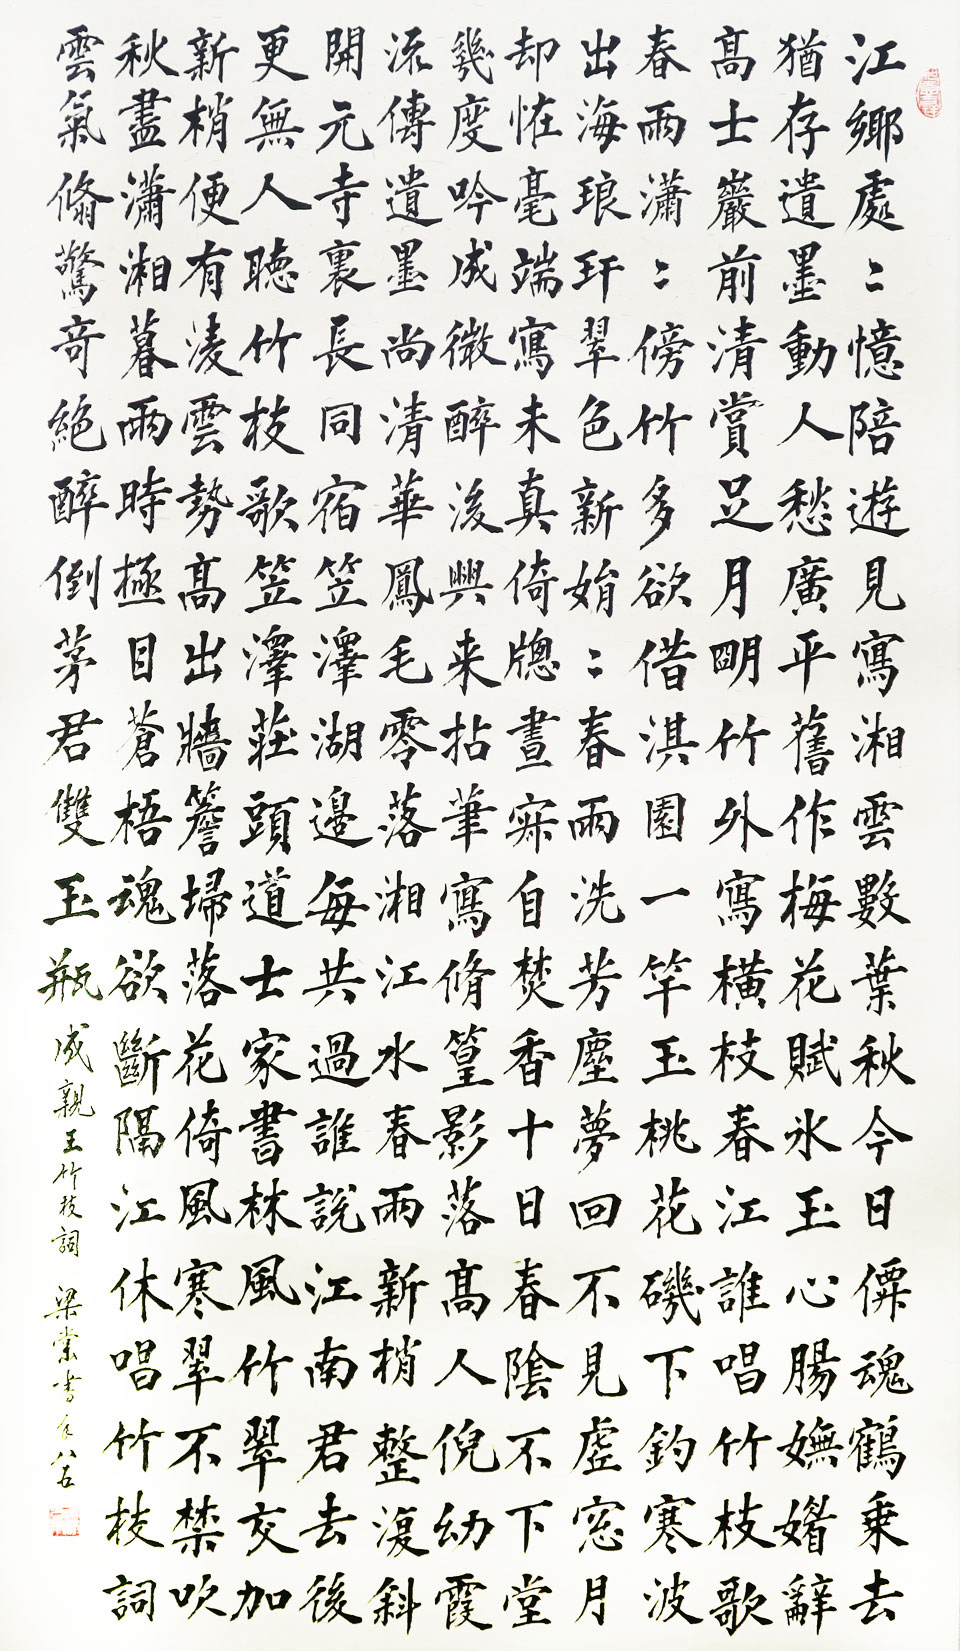 江鄉處〻憶陪遊見寫湘雲數葉秋今日僊魂鶴乘去
猶存遺墨動人愁廣平舊作梅花賦冰玉心腸嫵媚辭
高士巖前清賞足月明竹外寫橫枝春江誰唱竹枝歌
春雨瀟〻傍竹多欲借淇園一竿玉桃花磯下釣寒波
出海琅玕翠色新娟〻春雨洗芳塵夢回不見虛窓月
却恠毫端寫未真倚牕晝寐自焚香十日春陰不下堂
幾度吟成微醉後興来拈筆寫脩篁影落高人倪幼霞
流傳遺墨尚清華鳳毛零落湘江水春雨新梢整復斜
開元寺裏長同宿笠澤湖邊每共過誰說江南君去後
更無人聽竹枝歌笠澤莊頭道士家書林風竹翠交加
新梢便有淩雲勢高出牆簷埽落花倚風寒翠不禁吹
秋盡瀟湘暮雨時極目蒼梧魂欲斷隔江休唱竹枝詞
雲氣翛驚奇絕醉倒茅君雙玉瓶 成親王竹枝詞 梁棠書年八五